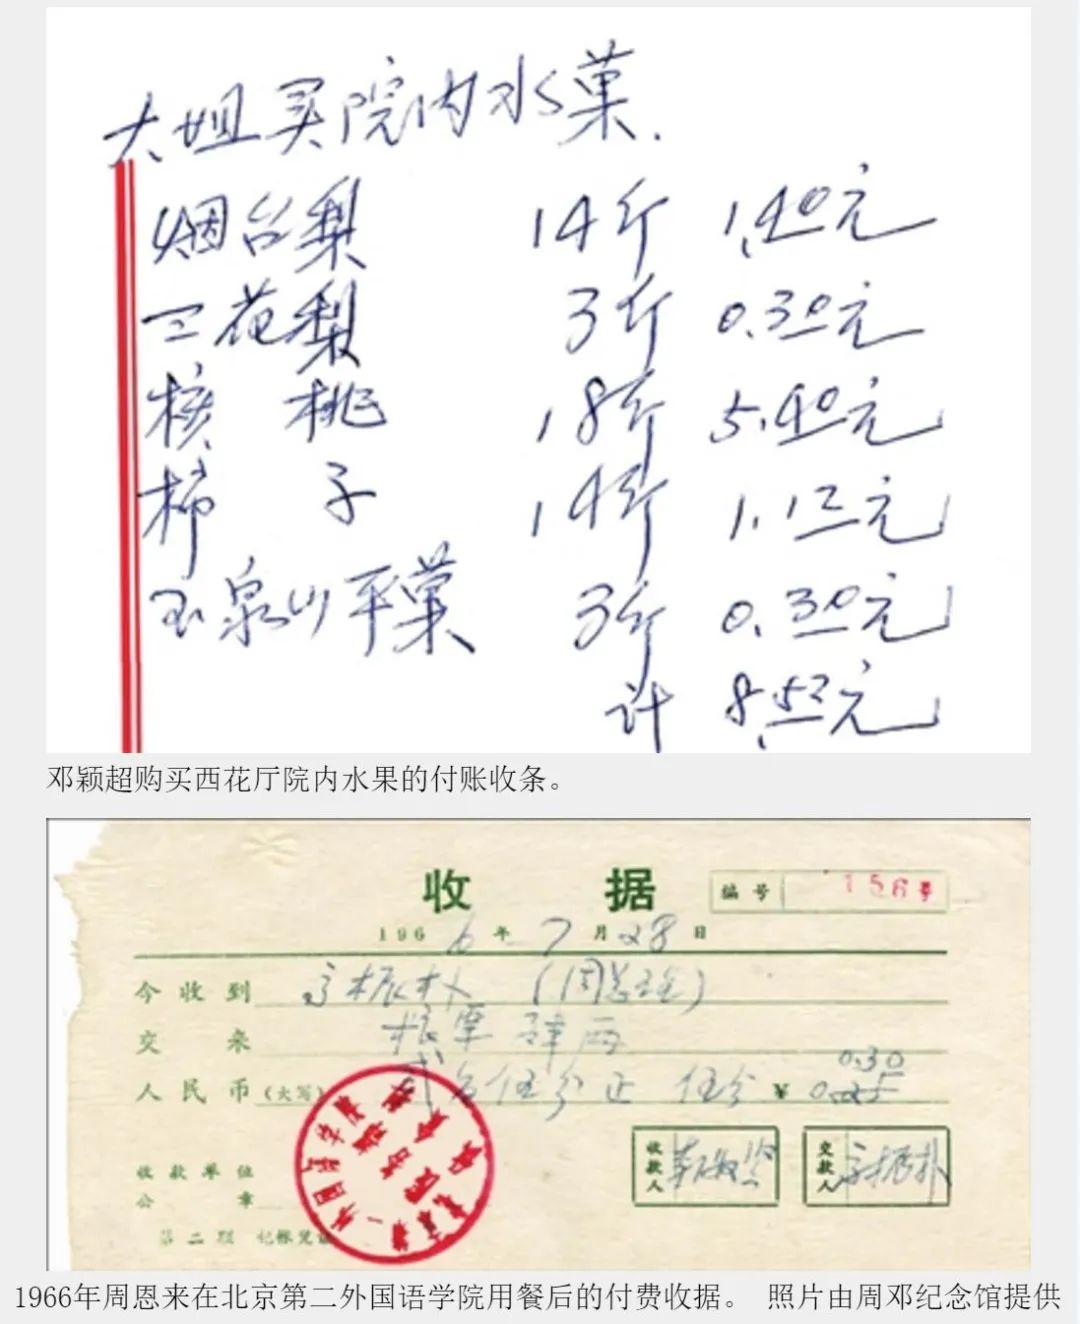 大姐买院内水菓.
烟台梨 14斤 1.40元
三花梨 3斤 0.30元
核桃 18斤 5.40元
柿子 14斤 1.12元
玉泉山平菓 3斤 0.30元
计 8.52元
邓颖超购买西花厅院内水果的付账收条。
收据
编号 156号
1966年7月28日
今收到 高振朴（周总理）
交来 粮票肆两
0.30
人民币（大写）弍角伍分正 伍分 ¥0.25
收款人
交款人 高振朴
收款单位
公章
第二联 记帐凭证
1966年周恩来在北京第二外国语学院用餐后的付费收据。 照片由周邓纪念馆提供